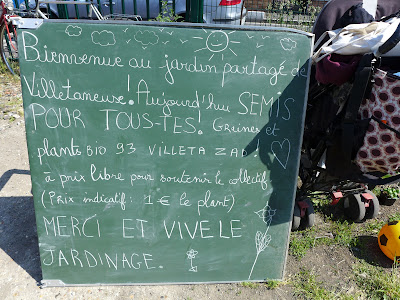 Bienvenue au jardin partagé de
Villetaneuse! Aujourd'hui SEMIS
POUR TOUS·TES! Graines et
plants BIO 93 VILLETA ZAD!
à prix libre pour soutenir le collectif
(Prix indicatif: 1€ le plant)
MERCI ET VIVE LE
JARDINAGE.